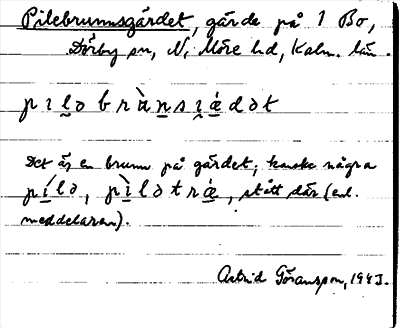 Pilebrunnsgärdet, gärde på 1 Bo,
Dörby sn, N. Möre hd, Kalm. län.
pıl̯ə brànsı̯æ̀dət
Det är en brunn på gärdet; kanske några
pı́lə, pı̀lətræ, stått där (enl.
meddelaren).
Astrid Göransson, 1943.